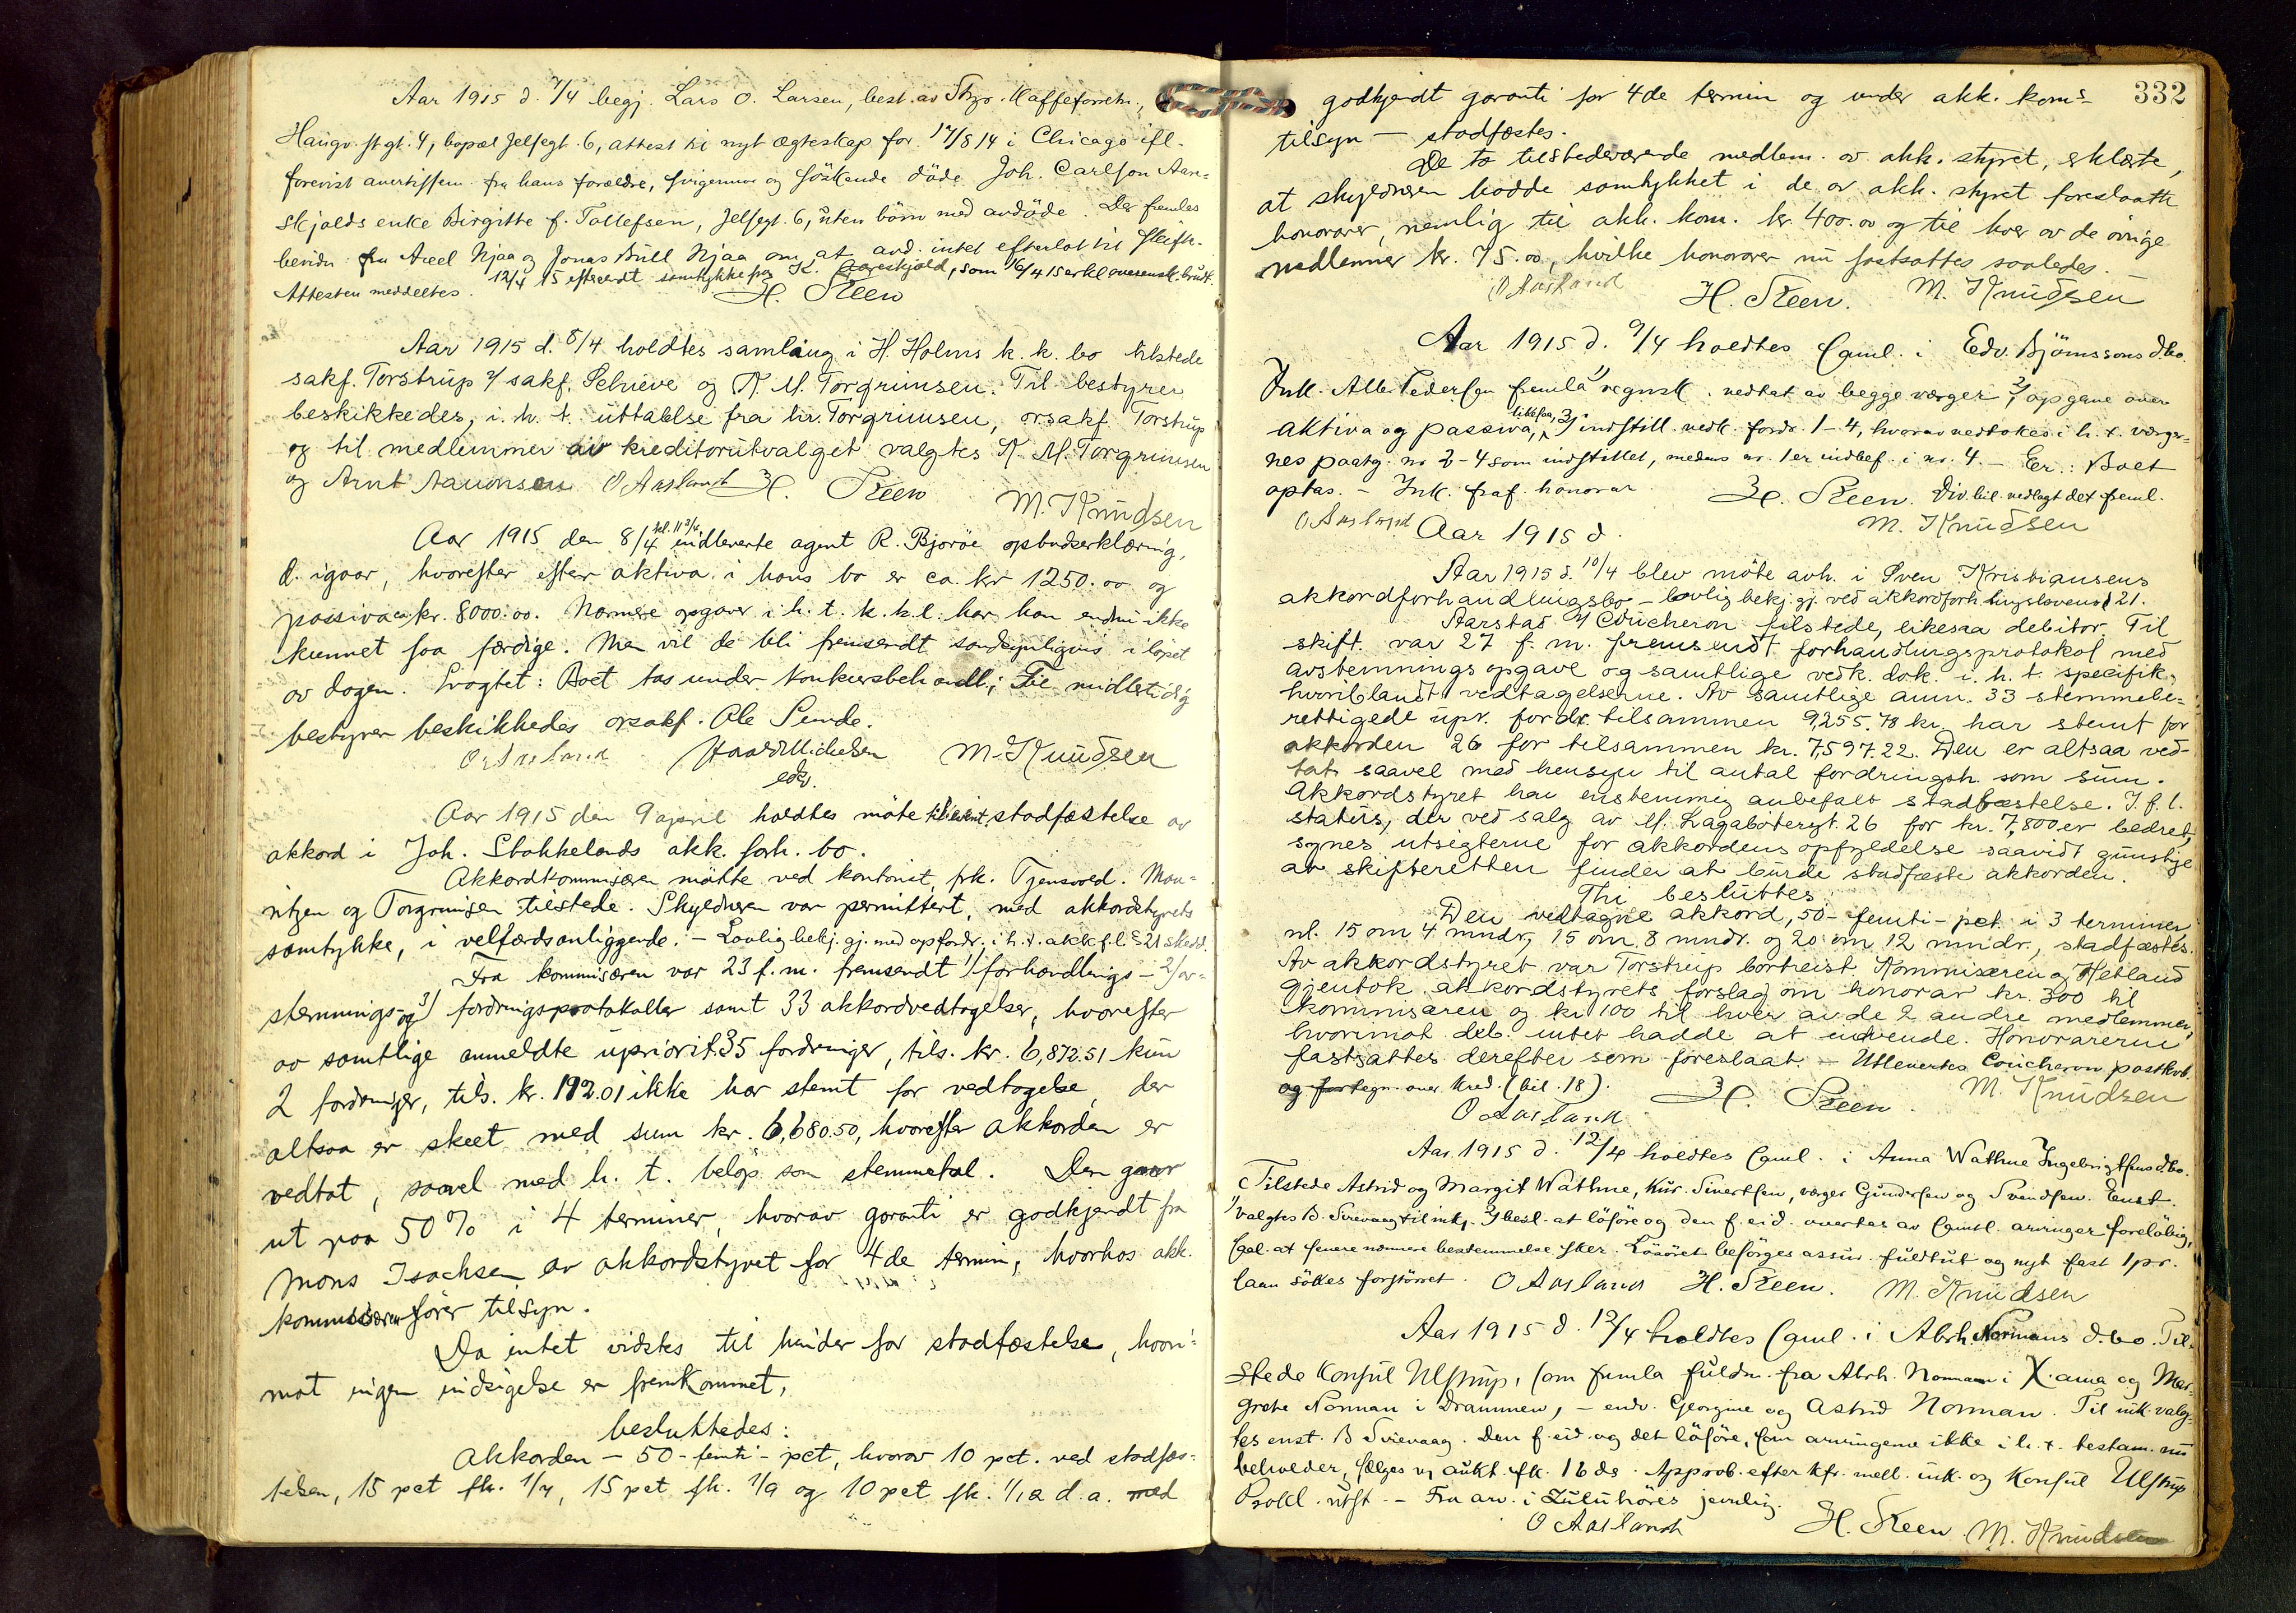 Aar 1915 d. 7/4 begj. Lars O. Larsen, best. av Kaffeforretn.,
Haugv. st gt. 4, bopæl Jelsegt. 6, attest til nyt ægteskap for 17/8 14 i Chicago ifl.
forevist avertissem. fra hans forældre, svigermor og söskende döde Joh. Carlson Aare-
skjolds enke Birgitte f. Tollefsen, Jelsegt. 6, uten börn med avdöde. Der fremlas
bevidn. fra Axel Njaa og Jonas Büll Njaa om at avd. intet efterlot til skifte.
Attesten meddeltes. 12/4 15 efterendt samtykke fra K. Aareskjold, som 16/4 15
H. Steen
Aar 1915 d. 8/4 holdtes samling i H. Holms k. k. bo tilstede
sakf. Torstrup v/ sakf. Schieve og K. M. Torgrimsen. Til bestyrer
beskikkedes, i. h. t. uttalelse fra hr. Torgrimsen, orsakf. Torstrup
og til medlemmer av kreditorutvalget valgtes K. M. Torgrimsen
og Arnt Aamonsen O Aasland H. Steen
M. Knudsen
Aar 1915 den 8/4 kl. 11 3/4 indleverte agent R. Bjoröe opbudserklæring,
d. igaar, hvorefter efter aktiva i hans bo er ca. kr 1250.00 og
passiva ca kr. 8000.00. Nærmere opgaver i h. t. k. k. l. har han endnu ikke
kunnet faa færdige. Men vil de bli fremsendt sandsynligvis i löpet
av dagen. Bragtet: Boet tas under konkursbehandl; Til midlertidig
bestyrer beskikkedes orsakf. Ole Sunde.
O Aasland Haavd Michelsen M. Knudsen
edsv.
Aar 1915 den 9 april holdtes möte til event. stadfæstelse av
akkord i Joh. Stokkelands akk. forh. bo.
Akkordkommisæren mötte ved kontorist, frk. Tjensvold. Mau-
ritzen og Torgrimsen tilstede. Skyldneren var permittert, med akkordstyrets
samtykke, i velfærdsanliggende. – Lovlig bekj. gj. med opfordr. i h. t. akk. f. l. § 21 skedd.
Fra kommisæren var 23 f. m. fremsendt 1) forhandlings – 2) av-
stemnings- og 3) fordringsprotokoller samt 33 akkordvedtagelser, hvorefter
av samtlige anmeldte upriorit. 35 fordringer, tils. kr. 6,872.51 kun
2 fordringer, tils. kr. 192.01 ikke har stemt for vedtagelse, der
altsaa er skeet med sum kr. 6,680.50, hvorefter akkorden er
vedtat, saavel med h. t. belöp som stemmetal. Den gaar
ut paa 50% i 4 terminer, hvorav garanti er godkjendt fra
Mons Isachsen av akkordstyret for 4de termin, hvorhos akk.
kommisæren förer tilsyn.
Da intet vidstes til hinder for stadfæstelse, hvori-
mot ingen indsigelse er fremkommet,
besluttedes:
Akkorden – 50 – femti – pct, hvorav 10 pct. ved stadfæs-
telsen, 15 pct fh. 1/7, 15 pct. fh. 1/9 og 10 pct fh. 1/12 d. a. med
332
godkjendt garanti for 4de termin og under akk. kom.s
tilsyn – stadfæstes.
De to tilstedeværende medlem. av akk. styret, erklærte,
at skyldneren hadde samtykket i de av akk. styret foreslaatte
honorarer, nemlig til akk. kom. kr. 400.00 og til hver av de övrige
medlemmer kr. 75.00, hvilke honorarer nu fastsattes saaledes.
O Aasland H. Steen. M. Knudsen
Aar 1915 d. 9/4 holdtes saml. i Edv. Björnssons d.bo.
Ink. Alb. Pedersen fremla 1) regnsk. vedtat av begge værger, 2) opgave over
aktiva og passiva, likesaa, 3) indstill. vedk. fordr. 1–4, hvorav vedtokes i h. t. værger-
nes paateg. nr 2–4 som indstillet, medens nr. 1 er indbef. i nr. 4. – Er.: Boet
optas. – Ink. fraf. honorar. H. Steen. Div. bil. vedlagt det freml.
O Aasland M. Knudsen
Aar 1915 d.
Aar 1915 d. 10/4 blev möte avh. i Sven Kristiansens
akkordforhandlingsbo – lovlig bekj. gj. ved akkordforh.lingslovens § 21.
Aarstad v/ Coucheron tilstede, likesaa debitor. Til
skift. var 27 f. m. fremsendt forhandlingsprotokol med
avstemningsopgave og samtlige vedk. dok. i. h. t. specifik.,
hvoriblandt vedtagelserne. Av samtlige anm. 33 stemmebe-
rettigede upr. fordr. tilsammen 9,255.78 kr har stemt for
akkorden 26 for tilsammen kr. 7,597.22. Den er altsaa ved-
tat saavel med hensyn til antal fordringsh. som sum.
Akkordstyret har enstemmig anbefalt stadfæstelse. I. f. l.
status, der ved salg av M. Lagabötersgt. 26 for kr. 7,800 er bedret,
synes utsigterne for akkordens opfyldelse saavidt gunstige
at skifteretten finder at burde stadfæste akkorden.
Thi besluttes:
Den vedtagne akkord, 50 – femti – pct. i 3 terminer
nl. 15 om 4 mndr, 15 om 8 mndr. og 20 om 12 mndr., stadfæstes.
Av akkordstyret var Torstrup bortreist. Kommisæren og Hetland
gjentok akkordstyrets forslag om honorar kr. 300 til
kommisæren og kr 100 til hver av de 2 andre medlemmer,
hvorimot deb. intet hadde at indvende. Honorarerne
fastsattes derefter som foreslaat. – Utlevertes Coucheron postkvit.
og fortegn. over kred. (bil. 18).
H. Steen. M. Knudsen
O Aasland
Aar 1915 d. 12/4 holdtes saml. i Anna Wathne Ingebrigtsens d.bo.
Tilstede Astrid og Margit Wathne, kur. Sivertsen, værger Gundersen og Svendsen. Enst.
valgtes B. Svievaag til ink. 2) besl. at löföre og den f. eid. overtas av samtl. arvinger foreløbig,
sael. at senere nærmere bestemmelse sker. Lösöret besörges assur. fuldtut og nyt fast 1 pr.
laan sökes forstörret. O Aasland H. Steen. M. Knudsen
Aar 1915 d. 12/4 holdtes saml. i Abrh Normans d.bo. Til-
stede konsul Ulstrup, som fremla fuldm. fra Abrh. Norman i X.ania og Mar-
grete Norman i Drammen, – endv. Georgine og Astrid Norman. Til ink. valg-
tes enst. B Svievaag. Den f. eid. og det löföre, som arvingerne ikke i h. t. bestem. nu
beholder, sælges v/ aukt. fh. 16 ds. Approb. efter kfr. mell. ink. og konsul Ulstrup
Prokl. utst. – Fra arv. i Zulu höres jevnlig.
O Aasland H. Steen. M. Knudsen